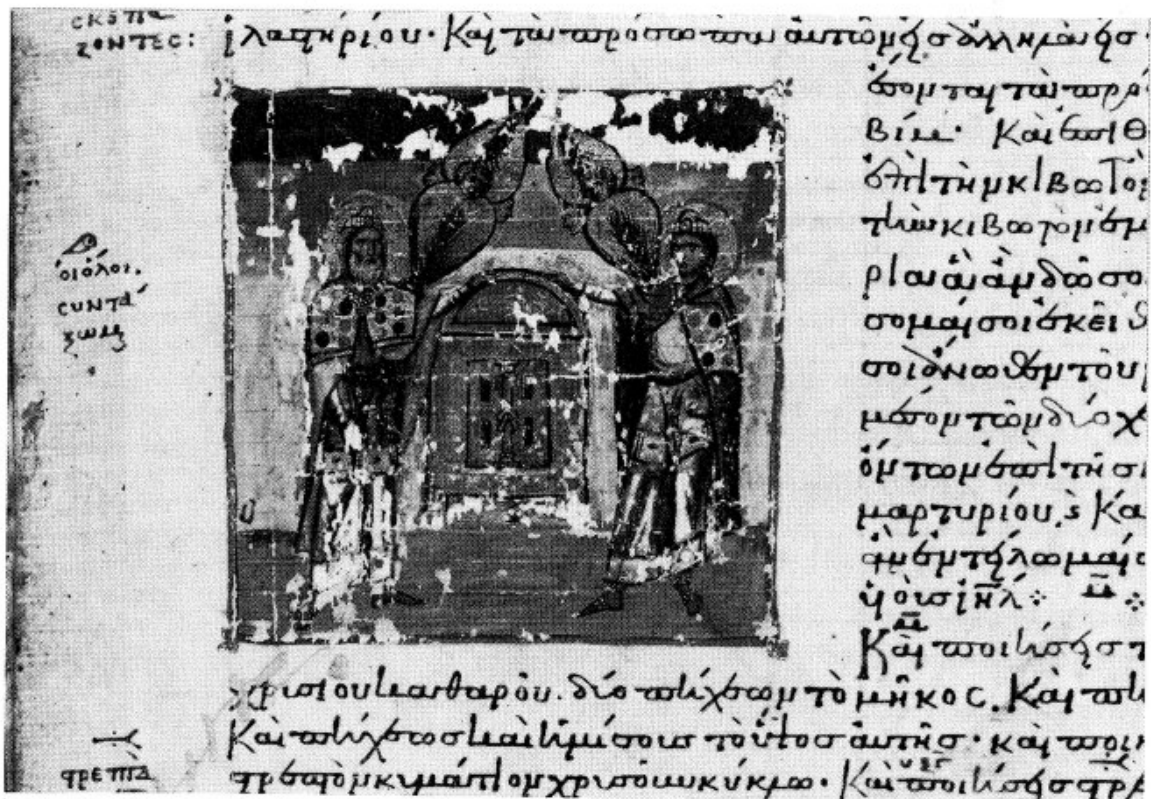 σκεπα
ζοντες:
ἱλαστηρίου· Καὶ τὰ πρόσωπα αὐτῶν εἰς ἄλληλα εἰς
ἔσονται τὰ πρό
βίμ· Καὶ ἐπιθ
ἐπὶ τὴν κιβωτὸ
τὴν κιβωτὸν ἐμ
ρια ἃ ἂν δῶ σο
σομαί σοι ἐκεῖθ
σοι ἄνωθεν τοῦ
μέσον τῶν δύο χ
ὄντων ἐπὶ τῆς
μαρτυρίου, Κα
ἂν ἐντέλωμαί σ
υἱοὺς ιηλ
Καὶ ποιήσεις τ
χρυσίου καθαροῦ. δύο πήχεων τὸ μῆκος. Καὶ πή
Καὶ πήχεως καὶ ἡμίσους τὸ ὕψος αὐτῆς· καὶ ποιή
στρεπτὸν κυμάτιον χρυσοῦν κύκλω. Καὶ ποιήσεις στρε
οἱ ὅλοι.
συντά
ξωμ